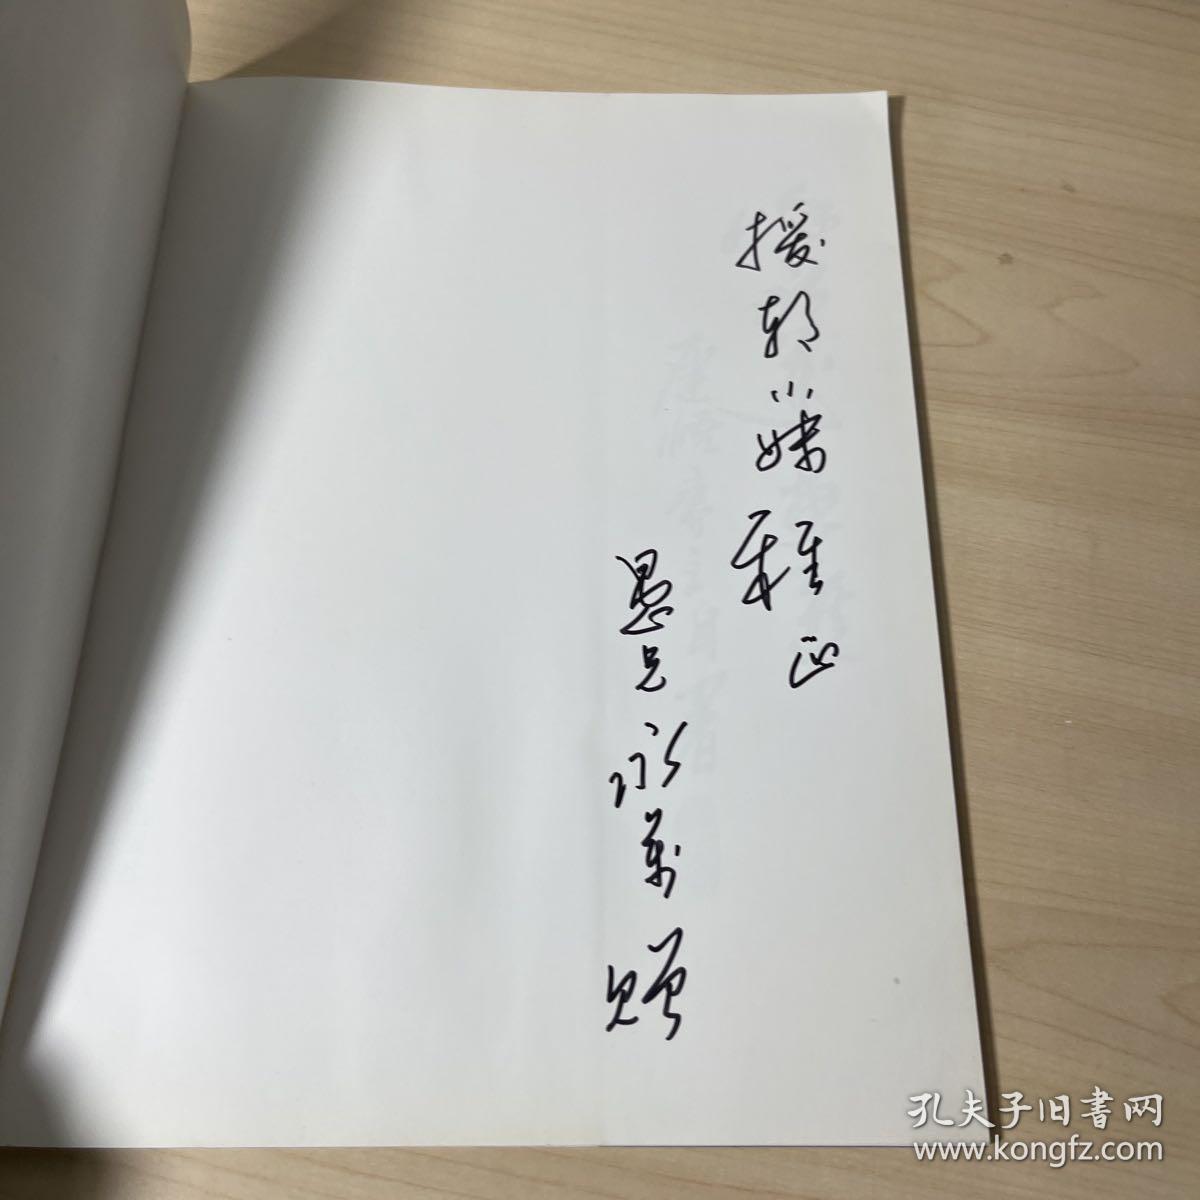 援朝小妹雅正
愚兄永万赠
孔夫子旧书网
www.kongfz.com